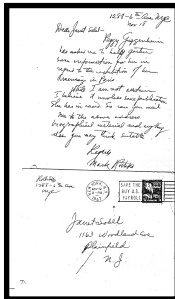 1288-6th Ave NYC
Nov 18
Dear Janet Sobel-
Peggy Guggenheim
has asked me to help gather
some information for her in
regard to the exhibition of her
in Paris
While I am not certain
I believe it involves some publication
she has in mind So can you mail
me at the above address
biographical material and anything
else you may think suitable
Mark Rothko
Rothko
1288-6th Ave
NYC
SAVE THE
BUY U.S.
PAYROLL
Janet Sobel
1163 Woodland Ave
Plainfield
N. J.